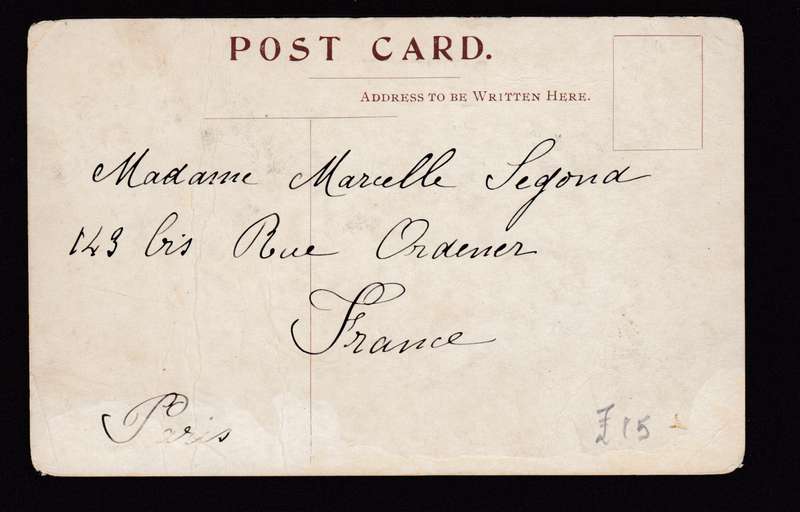 POST CARD.
ADDRESS TO BE WRITTEN HERE.
Madame Marcelle Segond
143 bis Rue Ordener
France
Paris
£15